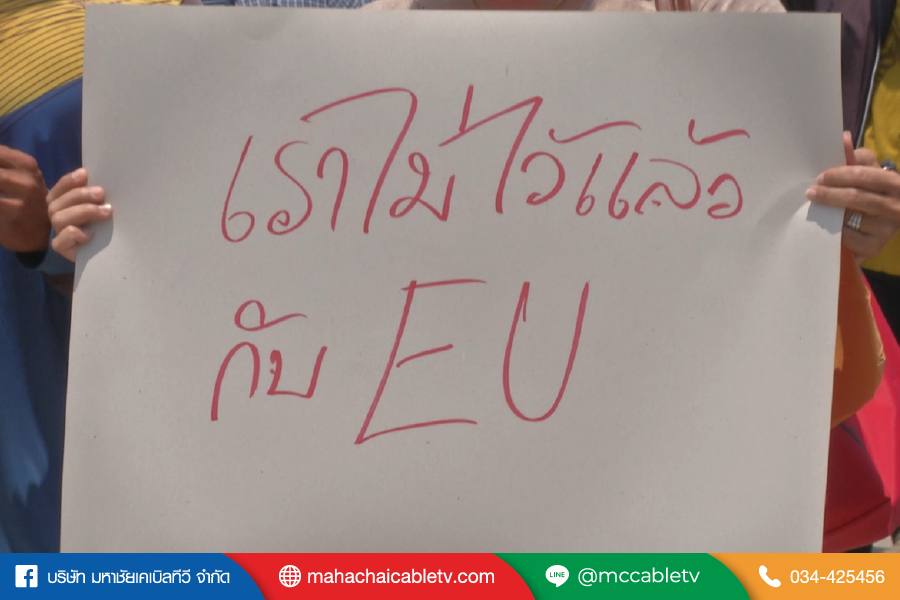 เราไม่ไว้แล้ว
กับ EU
บริษัท มหาชัยเคเบิลทีวี จำกัด mahachaicabletv.com LINE @mccabletv 034-425456